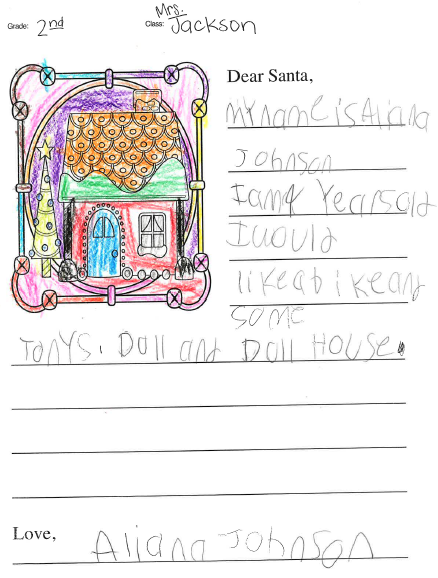 Grade: 2nd
Class: Mrs. Jackson
Dear Santa,
My name is Aliana
Johnson
I am Years old
I would
like a bike and
some
Tonys. Doll and Doll House.
Love,
Aliana Johnson